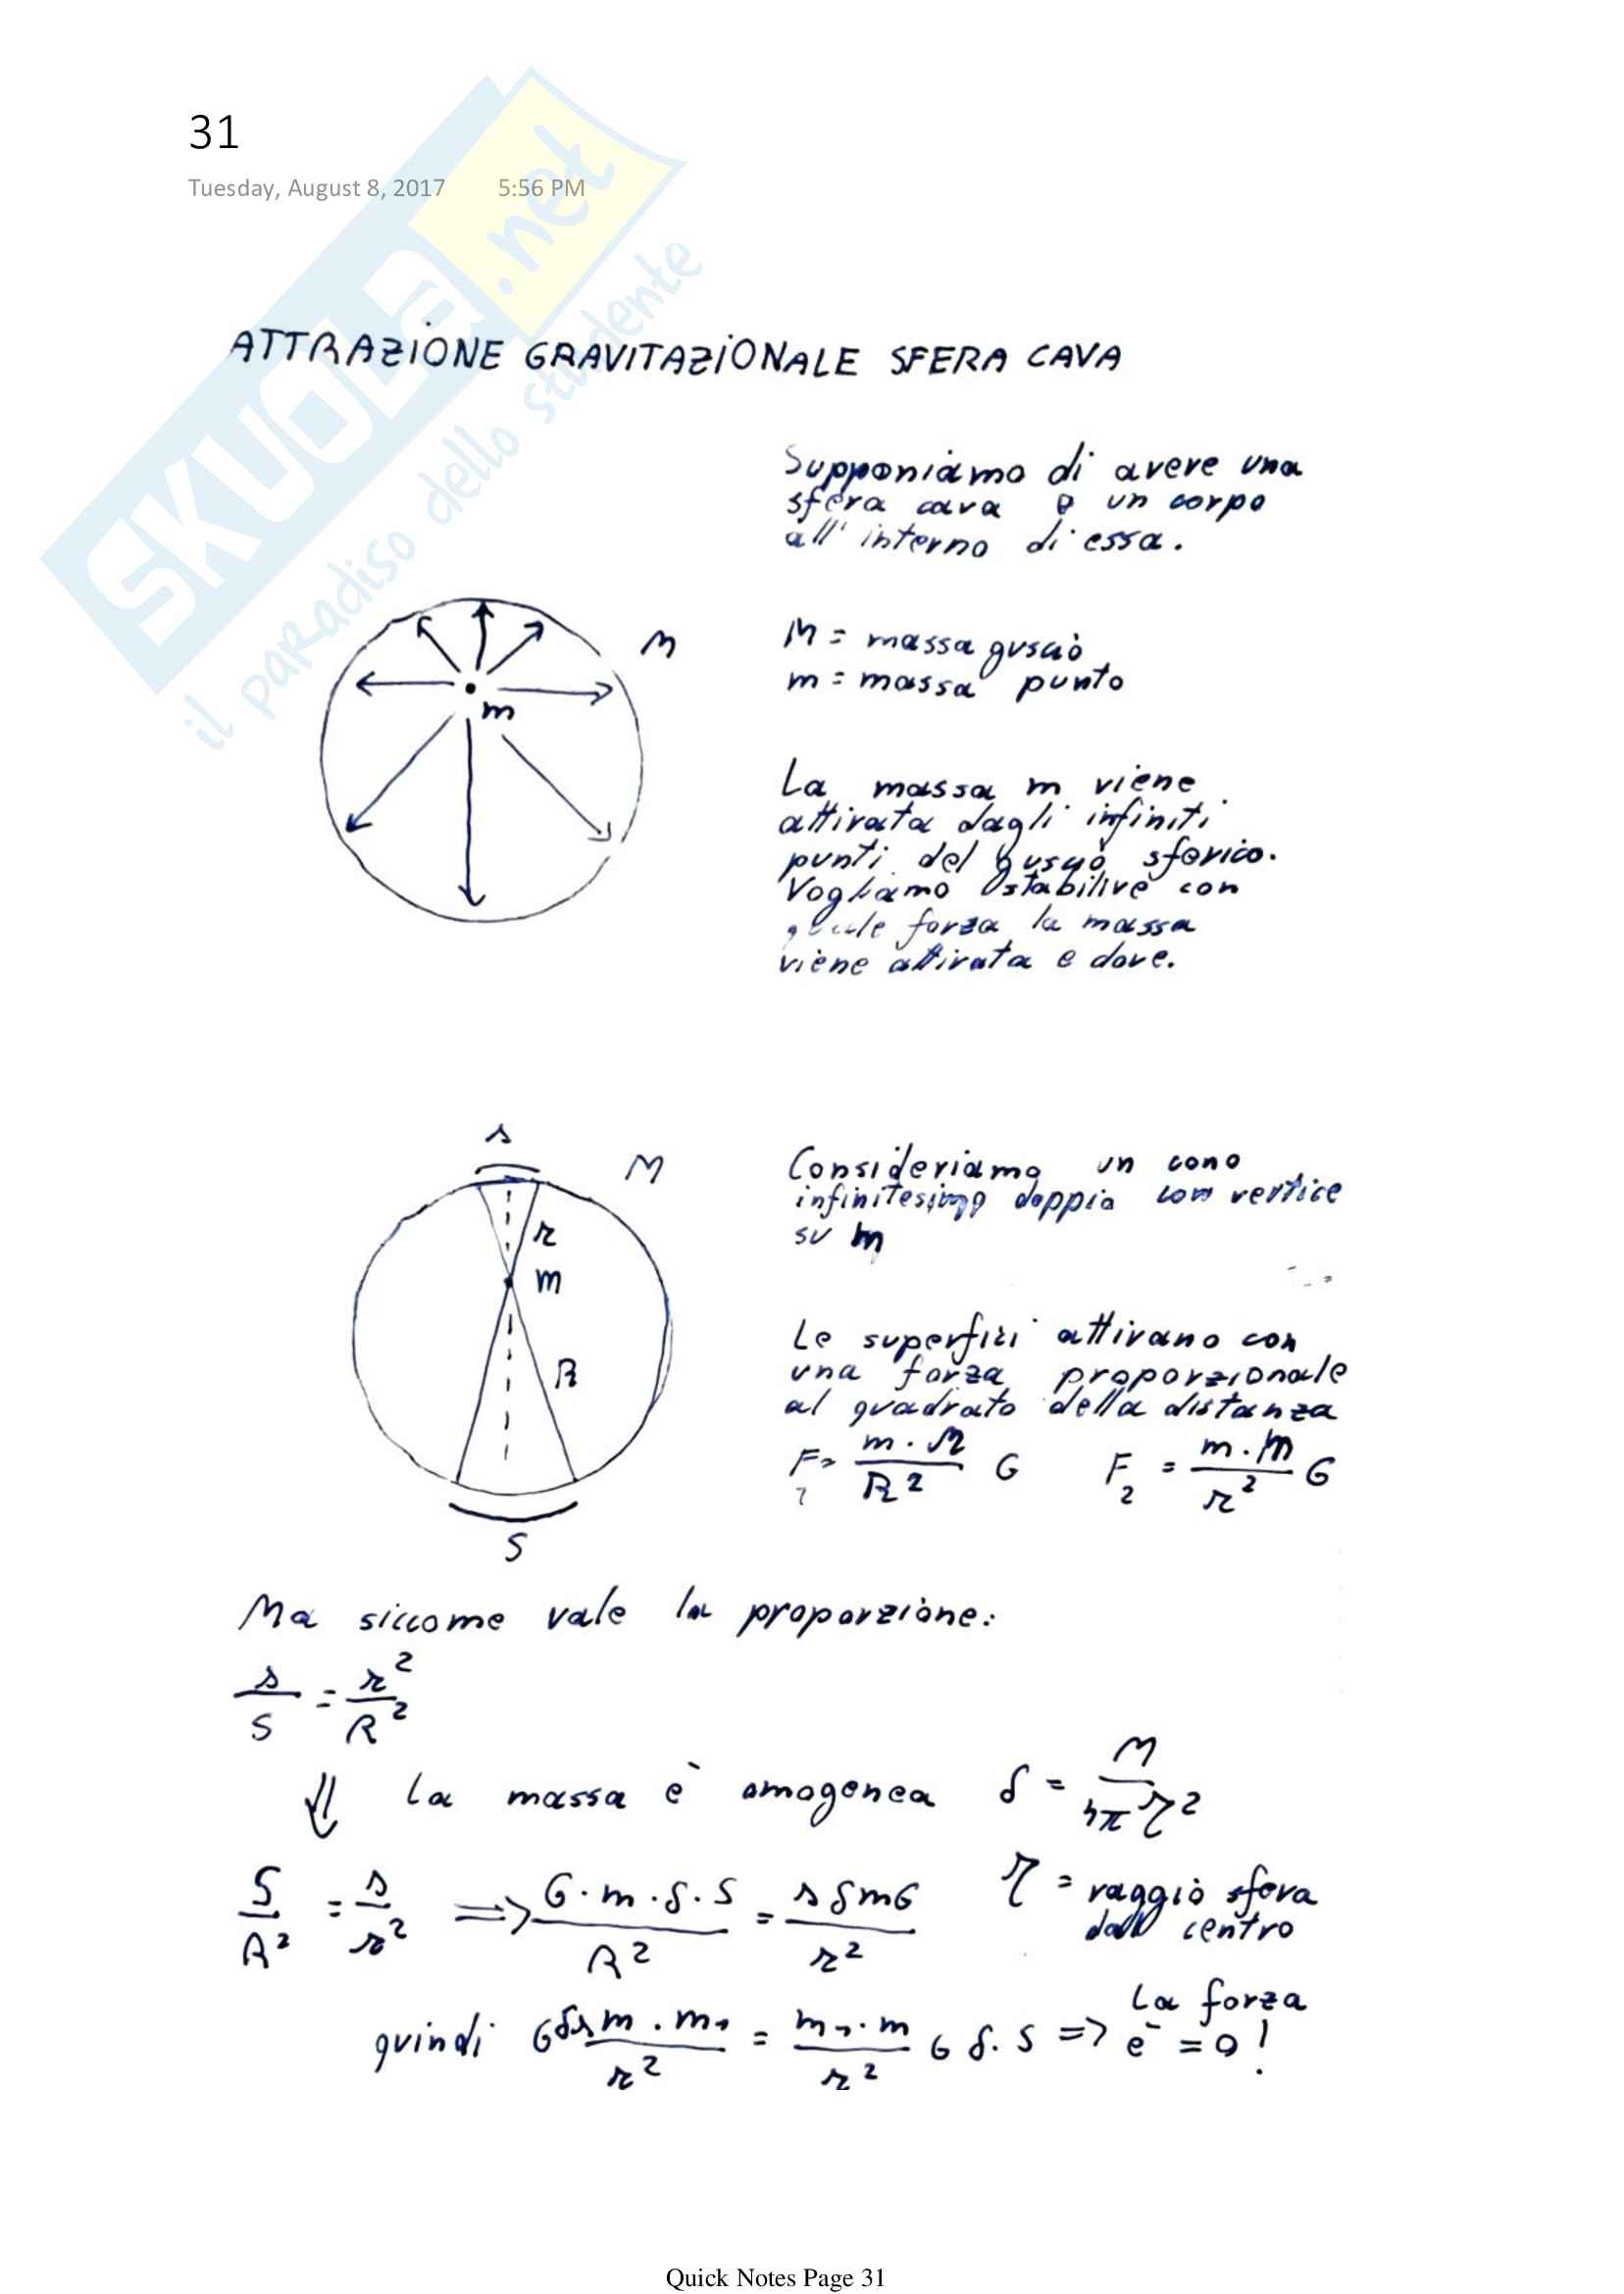 31
Tuesday, August 8, 2017 5:56 PM
SKUOLa.net
il paradiso dello studente
ATTRAZIONE GRAVITAZIONALE SFERA CAVA
Supponiamo di avere una
sfera cava e un corpo
all'interno di essa.
M
m
M = massa guscio
m = massa punto
La massa m viene
attirata dagli infiniti
punti del guscio sferico.
Vogliamo stabilire con
quale forza la massa
viene attirata e dove.
s
M
r
m
R
S
Consideriamo un cono
infinitesimo doppio con vertice
su m
Le superfici attirano con
una forza proporzionale
al quadrato della distanza
F = m · M / R² G F₂ = m · m / r² G
Ma siccome vale la proporzione:
s / S = r² / R²
⇓ La massa è omogenea δ = M / 4π r²
S / R² = s / r² ⇒ G · m · δ · S / R² = s δ m G / r²
r = raggio sfera
dal centro
quindi G δ s m · m₁ / r² = m₁ · m / r² G δ · S ⇒ La forza
è = 0!
Quick Notes Page 31